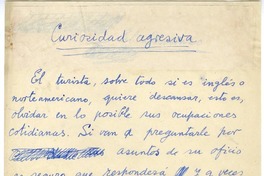 Curiosidad agresiva
El turista, sobre todo si es inglés o
norteamericano, quiere descansar, esto es,
olvidar en lo posible sus ocupaciones
cotidianas. Si van a preguntarle por
asuntos de su oficio
es seguro que responderá y a veces